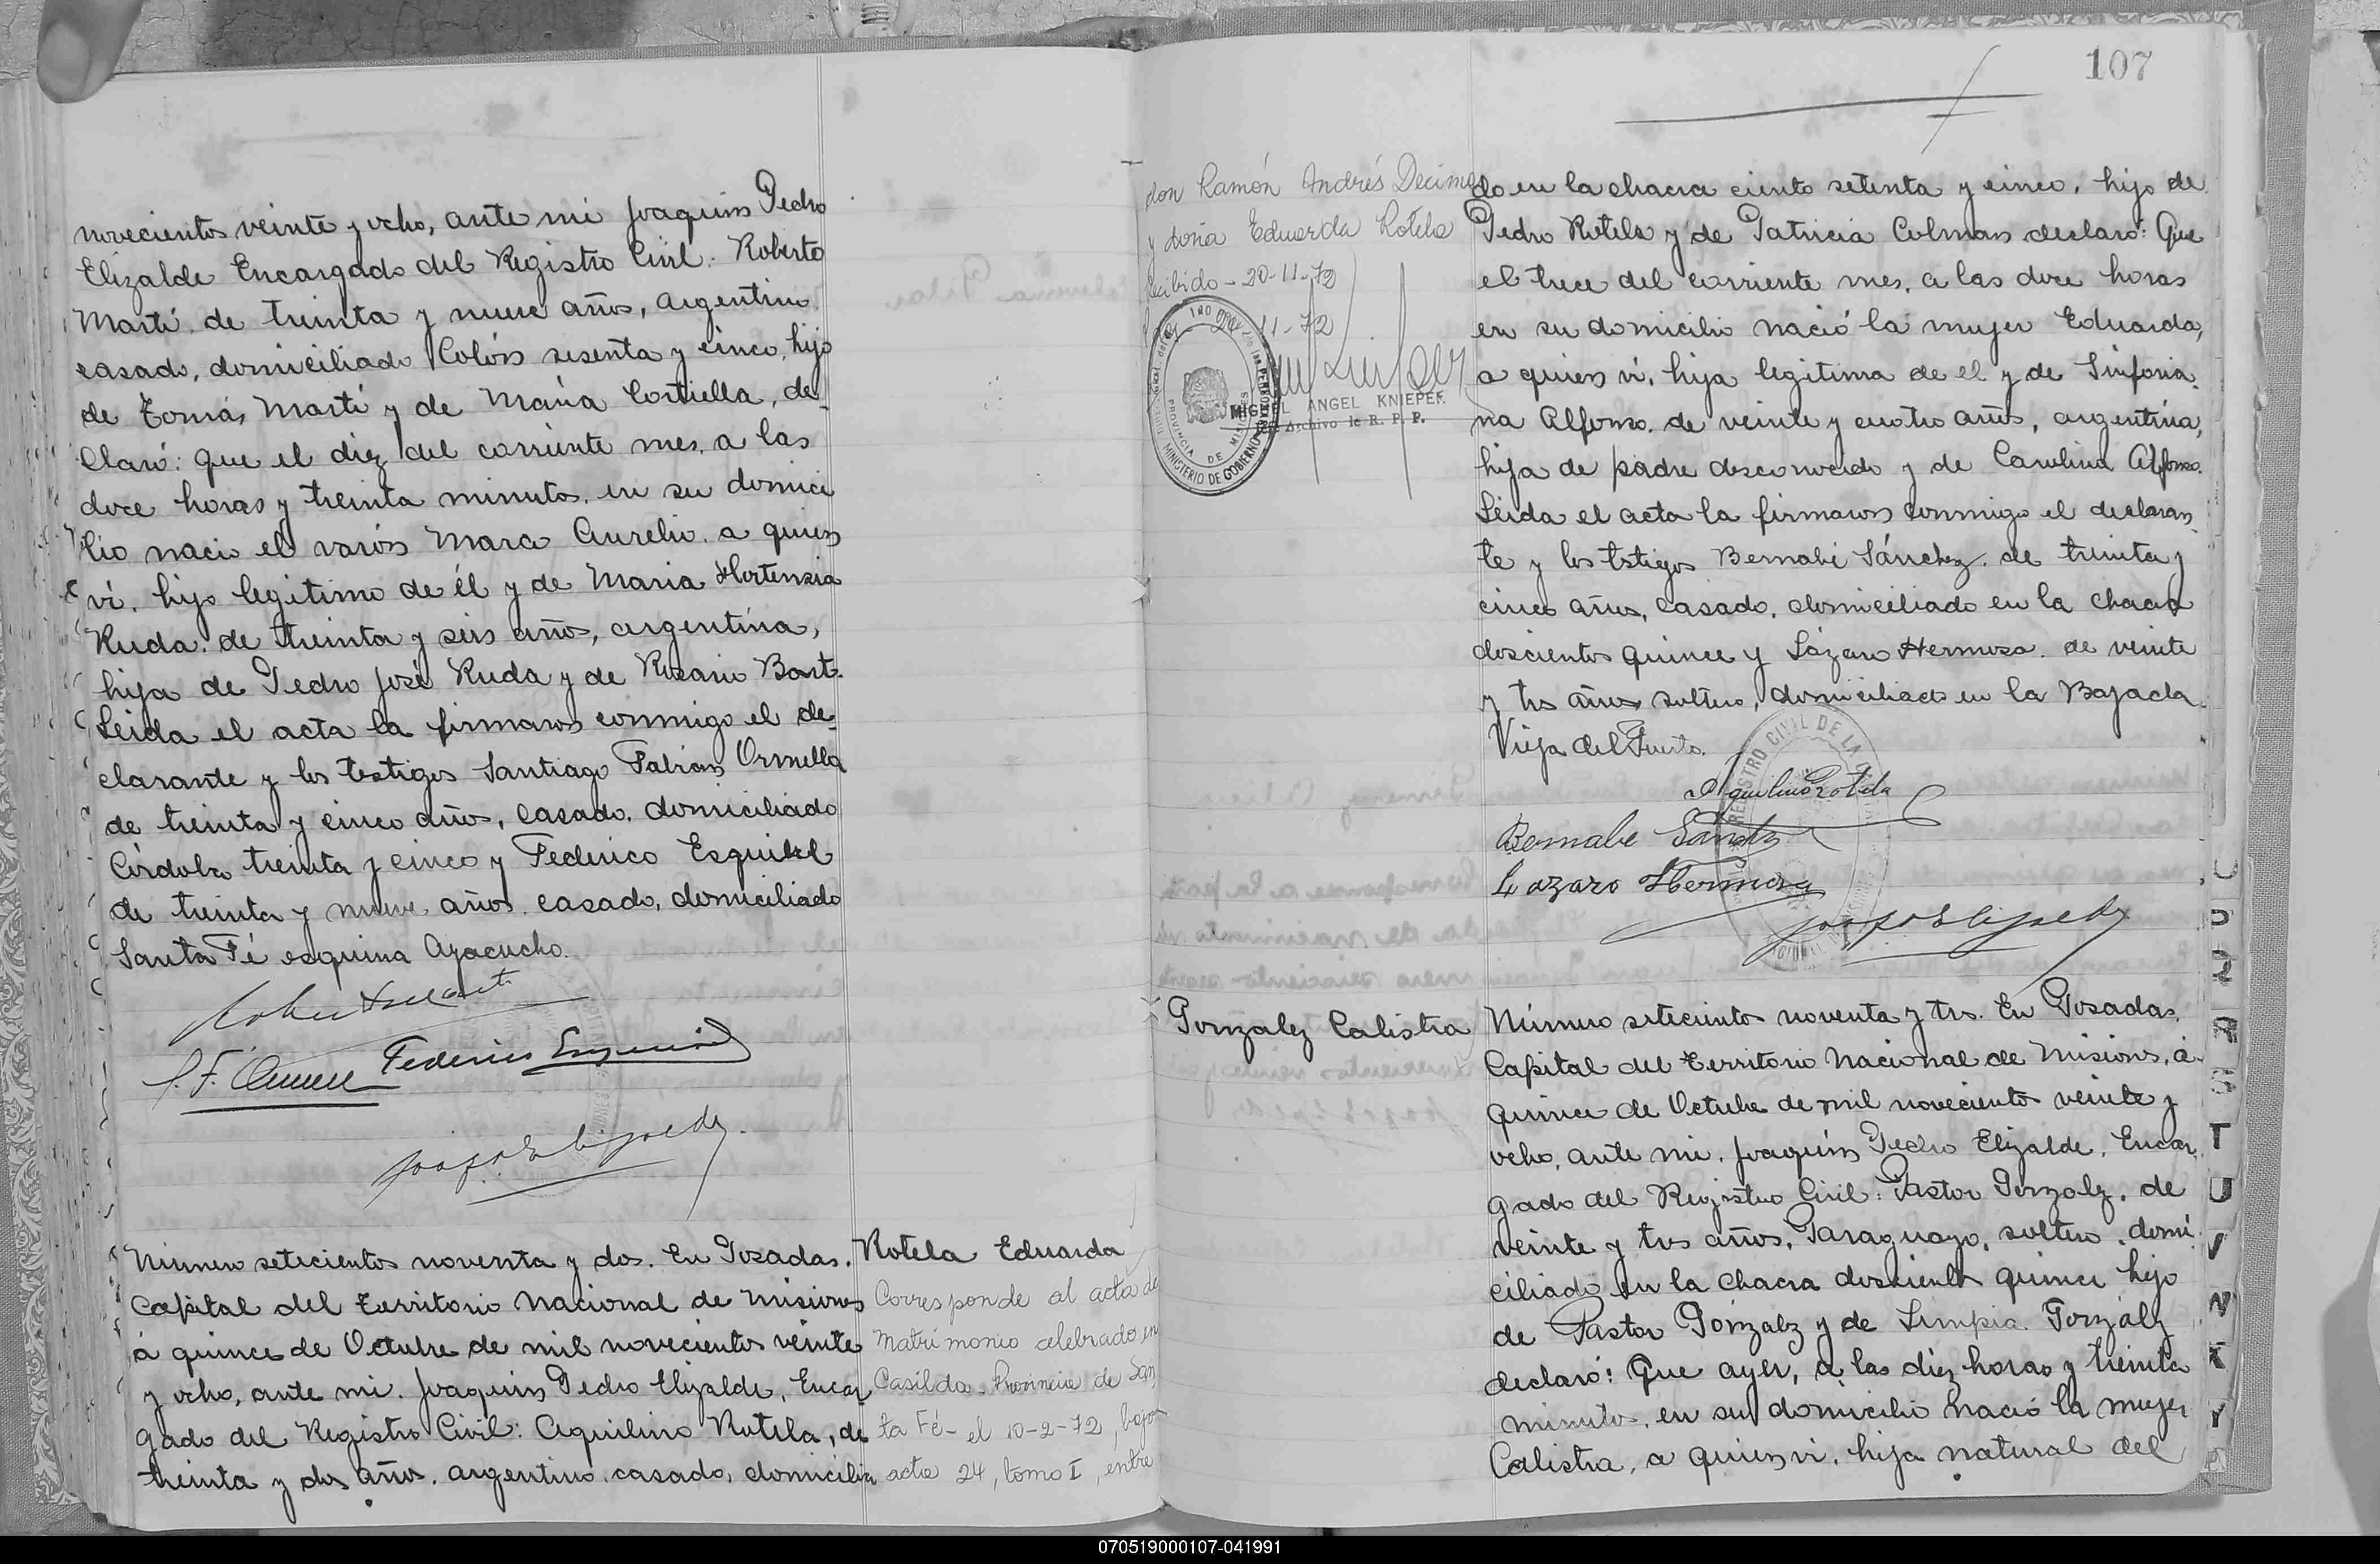 novecientos veinte y ocho, ante mi Joaquin Pedro
Elizalde Encargado del Registro Civil: Roberto
Martí, de treinta y nueve años, argentino
casado, domiciliado Colón sesenta y cinco, hijo
de Tomás Martí y de María Cortiella, de-
claró: que el diez del corriente mes, a las
doce horas y treinta minutos, en su domici
lio nació el varón Marco Aurelio, a quien
ví, hijo legítimo de él y de Maria Hortensia
Ruda, de treinta y seis años, argentina,
hija de Pedro José Ruda y de Rosario Bart.
Leida el acta la firmaron conmigo el de-
clarante y los testigos Santiago Fabian Ormella
de treinta y cinco años, casado, domiciliado
Córdoba treinta y cinco y Federico Esquivel
de treinta y nueve años, casado, domiciliado
Santa Fé esquina Ayacucho.
Número setecientos noventa y dos. En Posadas,
Capital del Territorio Nacional de Misiones
á quince de Octubre de mil novecientos veinte
y ocho, ante mi, Joaquin Pedro Elizalde, Encar
gado del Registro Civil: Aquilino Rotela, de
treinta y dos años, argentino, casado, domicilia
Rotela Eduarda
Corresponde al acta de
Matrimonio celebrado en
Casilda - Provincia de San
ta Fé - el 10-2-72, bajo
acta 24, tomo I, entre
107
don Ramón Andrés Decima
y doña Eduarda Rotela
Recibido - 20-11-72
11-72
PROVINCIA DE MISIONES
MINISTERIO DE GOBIERNO
MIGUEL ANGEL KNIEPER
Archivo de R. P. P.
do en la chacra ciento setenta y cinco, hijo de
Pedro Rotela y de Patricia Colman declaró: Que
el trece del corriente mes, a las doce horas
en su domicilio nació la mujer Eduarda,
a quien ví, hija legítima de el y de Sinforia
na Alfonso, de veinte y cuatro años, argentina,
hija de padre desconocido y de Carolina Alfonso.
Leida el acta la firmaron conmigo el declaran
te y los testigos Bernabé Sánchez, de treinta y
cinco años, casado, domiciliado en la chacra
doscientos quince y Lázaro Hermosa, de veinte
y tres años, soltero, domiciliado en la Bajada
Vieja del Puerto.
Aquilino Rotela
Bernabe Sanchez
Lazaro Hermosa
Gonzalez Calistra
Número setecientos noventa y tres. En Posadas,
Capital del Territorio Nacional de Misiones, á
quince de Octubre de mil novecientos veinte y
ocho, ante mi, Joaquin Pedro Elizalde, Encar
gado del Registro Civil: Pastor Gonzalez, de
veinte y tres años, Paraguayo, soltero, domi
ciliado en la chacra doscientos quince hijo
de Pastor Gonzalez y de Limpia Gonzalez
declaró: Que ayer, a las diez horas y treinta
minutos, en su domicilio nació la mujer
Calistra, a quien ví, hija natural del
070519000107-041991